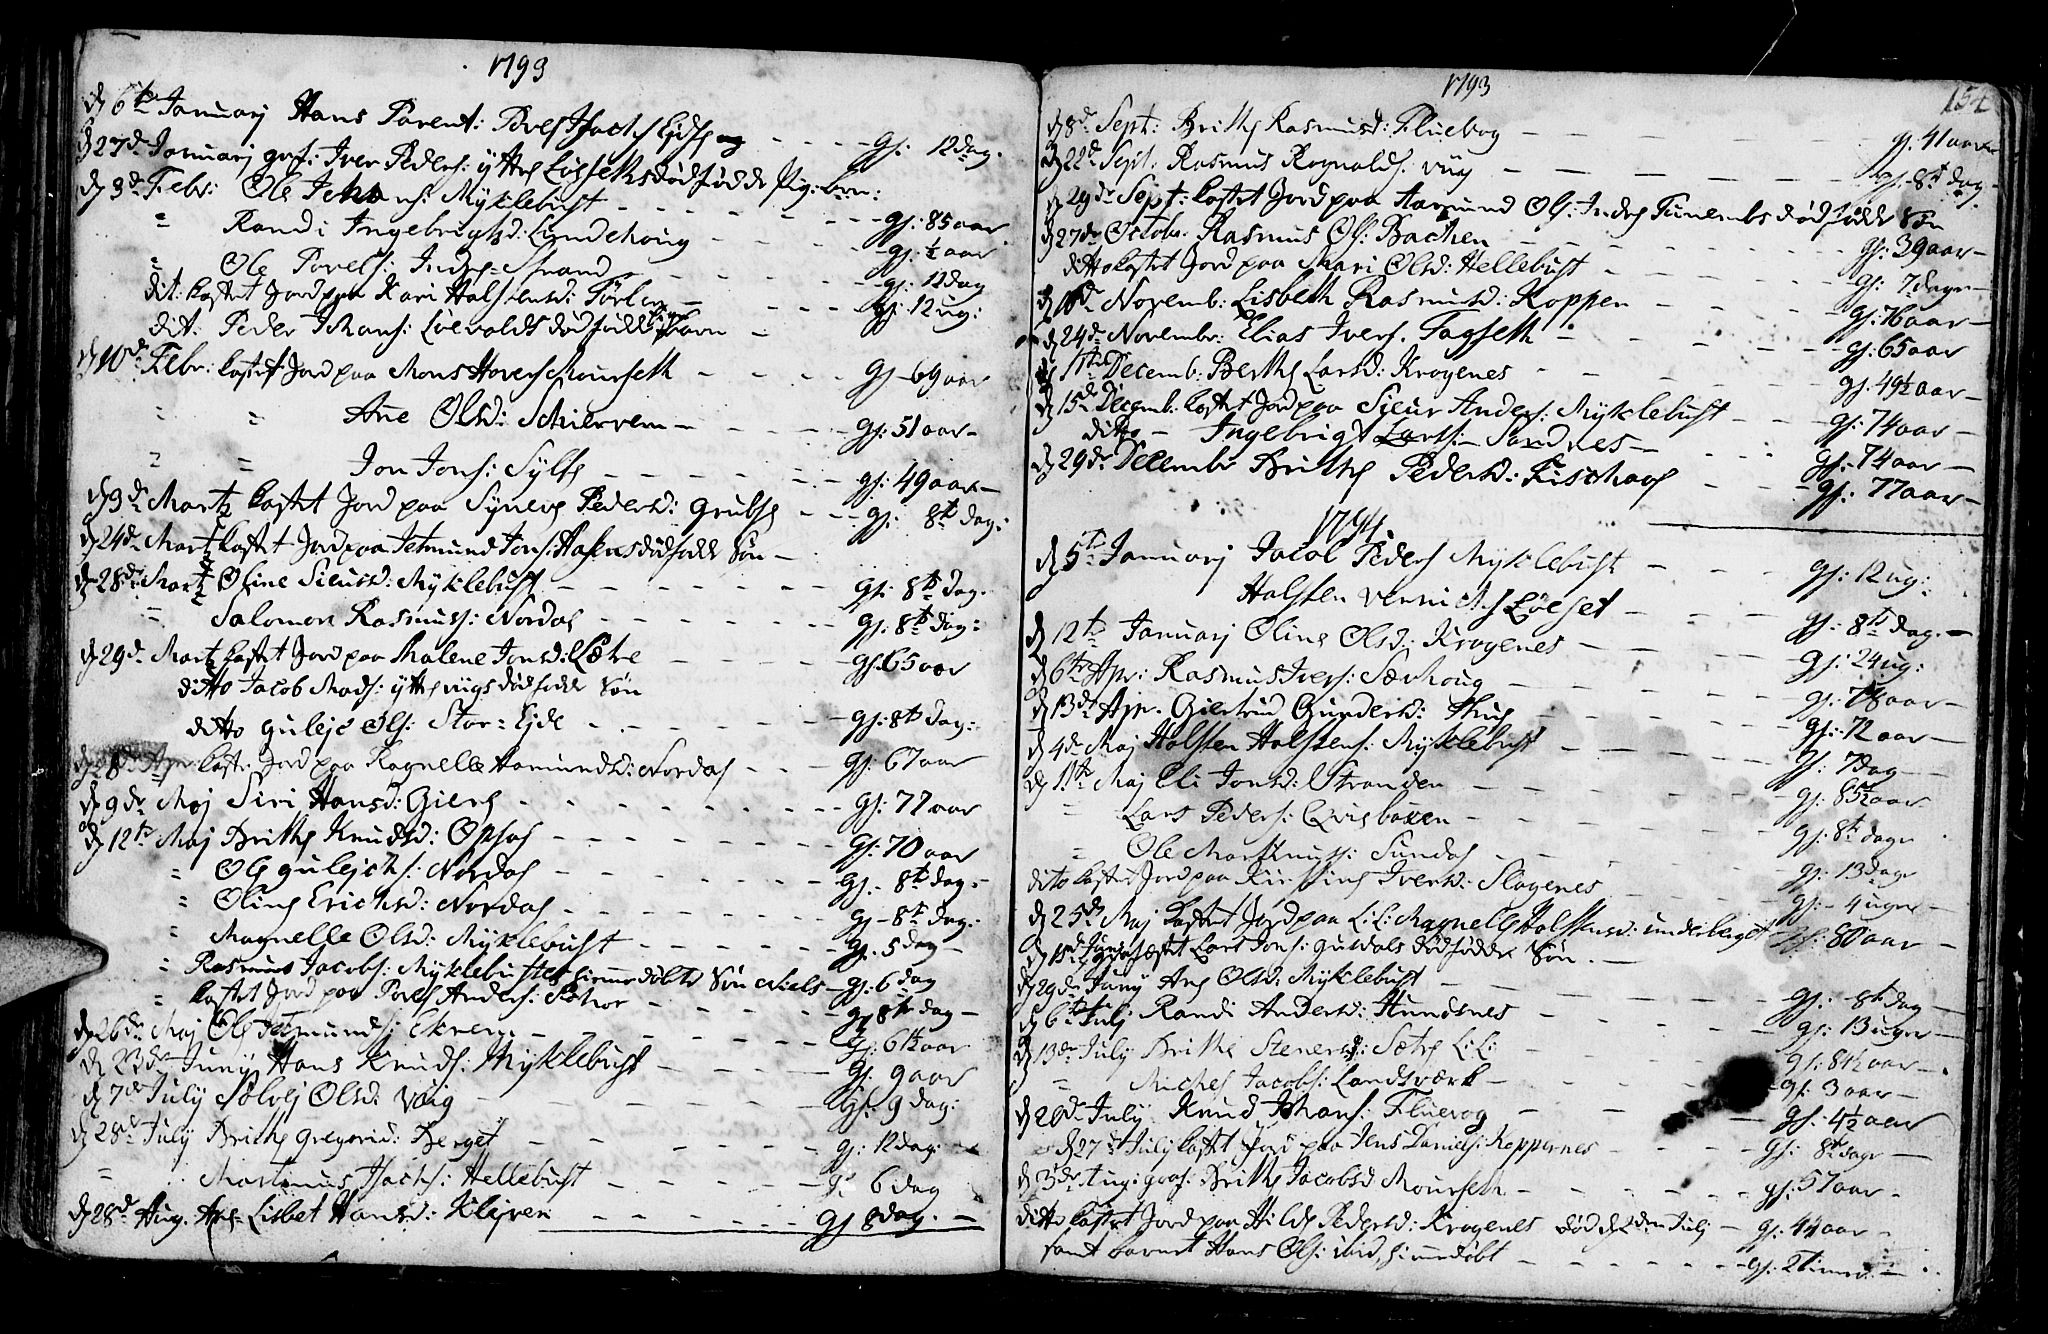 1793
d 6te Januarj Hans Parent: - - - - gl: 12 dag.
d 27de Januarj grf: Iver Peders: yttre Løsseths dødfødde Pig: barn:
d 3de Febr: Ole Johans: Myklebust - - - - gl: 85 aar.
" Randi Ingebrigtsd: Lundehoug - - - gl: ½ aar
" Ole Povels: Indre-Strand - - - gl: 12 dag
dit: kastet Jord paa Kari Halstensd: - - - gl: 12 ug:
dit: Peder Johans: Løevolds dødfødde barn
d 10de Febr: kastet Jord paa Mons Mourseth - - - gl 69 aar
" " Ane Olsd: Schierven - - - gl: 51 aar -
" " Jon Jons: Sylte - - - gl: 49 aar -
d 3de Martz kastet Jord paa Syneve Pedersd: Grubse - - - gl: 8te dag:
d 24de Martz kastet Jord paa Jetmund Jons: dødfødde Søn -
d 28de Martz Oline Sieursd: Myklebust - - - gl: 8te dag.
" Salomon Rasmuss: Nordal - - - gl: 8te dag:
d 29de Martz kastet Jord paa Malene Jonsd: Sætre - - - gl: 65 aar
ditto Jacob Mads: yttre Viigs dødfødde Søn
ditto Guleje Ols: Stor=Ejde - - - gl: 8te dag:
d 28de Apr: kast: Jord paa Ragnelle Aamundsd: Nordal - - - gl: 67 aar
d 9de Maj Siri Hansd: Giere - - - gl: 77 aar
d 12te Maj Brithe Knudsd: Opsal - - - gl: 70 aar
" Ole Gulejchs: Nordal - - - gl: 8te dag:
" Oline Erichsd: Nordal - - - gl 8te dag:
" Magnelle Olsd: Myklebust - - - gl: 5 dag -
" Rasmus Jacobs: Myklebusts hjemmedøbte Søn Niels - gl: 6 dag
" kastet Jord paa Povel Anders: - - - gl 8te dag -
d 26de Maj Ole Jetmunds: Ekrem - - - gl: 61½ aar
d 23de Junij Hans Knuds: Myklebust - - - gl: 9 aar
d 7de Julij Sølvej Olsd: Vaag - - - gl: 9 dag:
d 28de Julij Brithe Gregorid: Berget - - - gl: 12 dag:
" Martinus Isachs: Hellebust - - - gl: 6 dag
d 28de Aug. Ane Lisbet Hansd: Klejven - - - gl 8 dag. -
1793
154
d 8de Sept: Brithe Rasmusd: Fluevog - - - gl. 41 aar
d 22de Sept. Rasmus Rognalds: Viig - - - gl. 8te dag -
d 29de Sept: kastet Jord paa Aamund Ols: Indre Tunembs dødfødde Søn
d 27de Octobr. Rasmus Ols: Bachen - - - gl: 39 aar -
ditto kastet Jord paa Mari Olsd: Hellebust - - - gl: 7 dage -
d 10de Novemb: Lisbeth Rasmusd: Koppen - - - gl: 76 aar -
d 24de Novembr: Elias Ivers: Tagseth - - - gl: 65 aar
d 1ste Decemb: Berthe Larsd: Kragenes - - - gl: 49½ aar -
d 15de Decemb. kastet Jord paa Sieur Anders: Myklebust - - - gl: 74 aar -
ditto - Ingebrigt Lars: Sandnes - - - gl: 74 aar -
d 29de Decembr Brithe Pedersd: Fischaae - - - gl: 77 aar -
1794.
d 5te Januarj Jacob Peders Myklebust - - - gl: 12 ug:
Halsten Løeset - - - gl: 8te dag. -
d 12te Januarj Oline Olsd: Kragenes - - - gl: 24 ug:
d 6te Apr: Rasmus Ivers: Særhoug - - - gl: 78 aar -
d 13de Apr. Giertrud Gundersd: - - - gl: 72 aar -
d 4de Maj Halsten Halstens: Myklebust - - - gl: 7 dag -
d 11te Maj Eli Jonsd: Stranden - - - gl: 85½ aar
" Lars Peders: - - - gl: 8te dage
" Ole Sundal - - - gl: 13 dage
dito kastet Jord paa Kirstine Iversd: Slagenes - - - gl: 4 uger -
d 25de Maj kastet Jord paa L: L: Magnelle Halstensd: underberget gl: 80 aar -
d 15de Junij kastet Lars Jons: dødfødde Søn. -
d 29de Junij Ane Olsd: Myklebust - - - gl: 8te dag -
d 6te Julj Randi Andersd: Hundsnes - - - gl: 13 uger -
d 13de Julij Brithe Stenersd: Sætre L: L: - - - gl: 84½ aar -
" Michel Jacobs: Landsværk - - - gl: 3 aar -
d 20de Julij Knud Johans: Fluevog - - - gl: 4½ aar
d 27de Julij kastet Jord paa Jens Daniels: Koppernes - - - gl: 8te dage -
d 3de Aug: graf: Brithe Jacobsd Mourseth - - - gl: 57 aar -
ditto kastet Jord paa Hilde Pedersd: Kragenes død d 2den Julij - gl: 44 aar -
samt barnet Hans Ols: ibid, hjemmedøbt - - - gl: 2 timer -